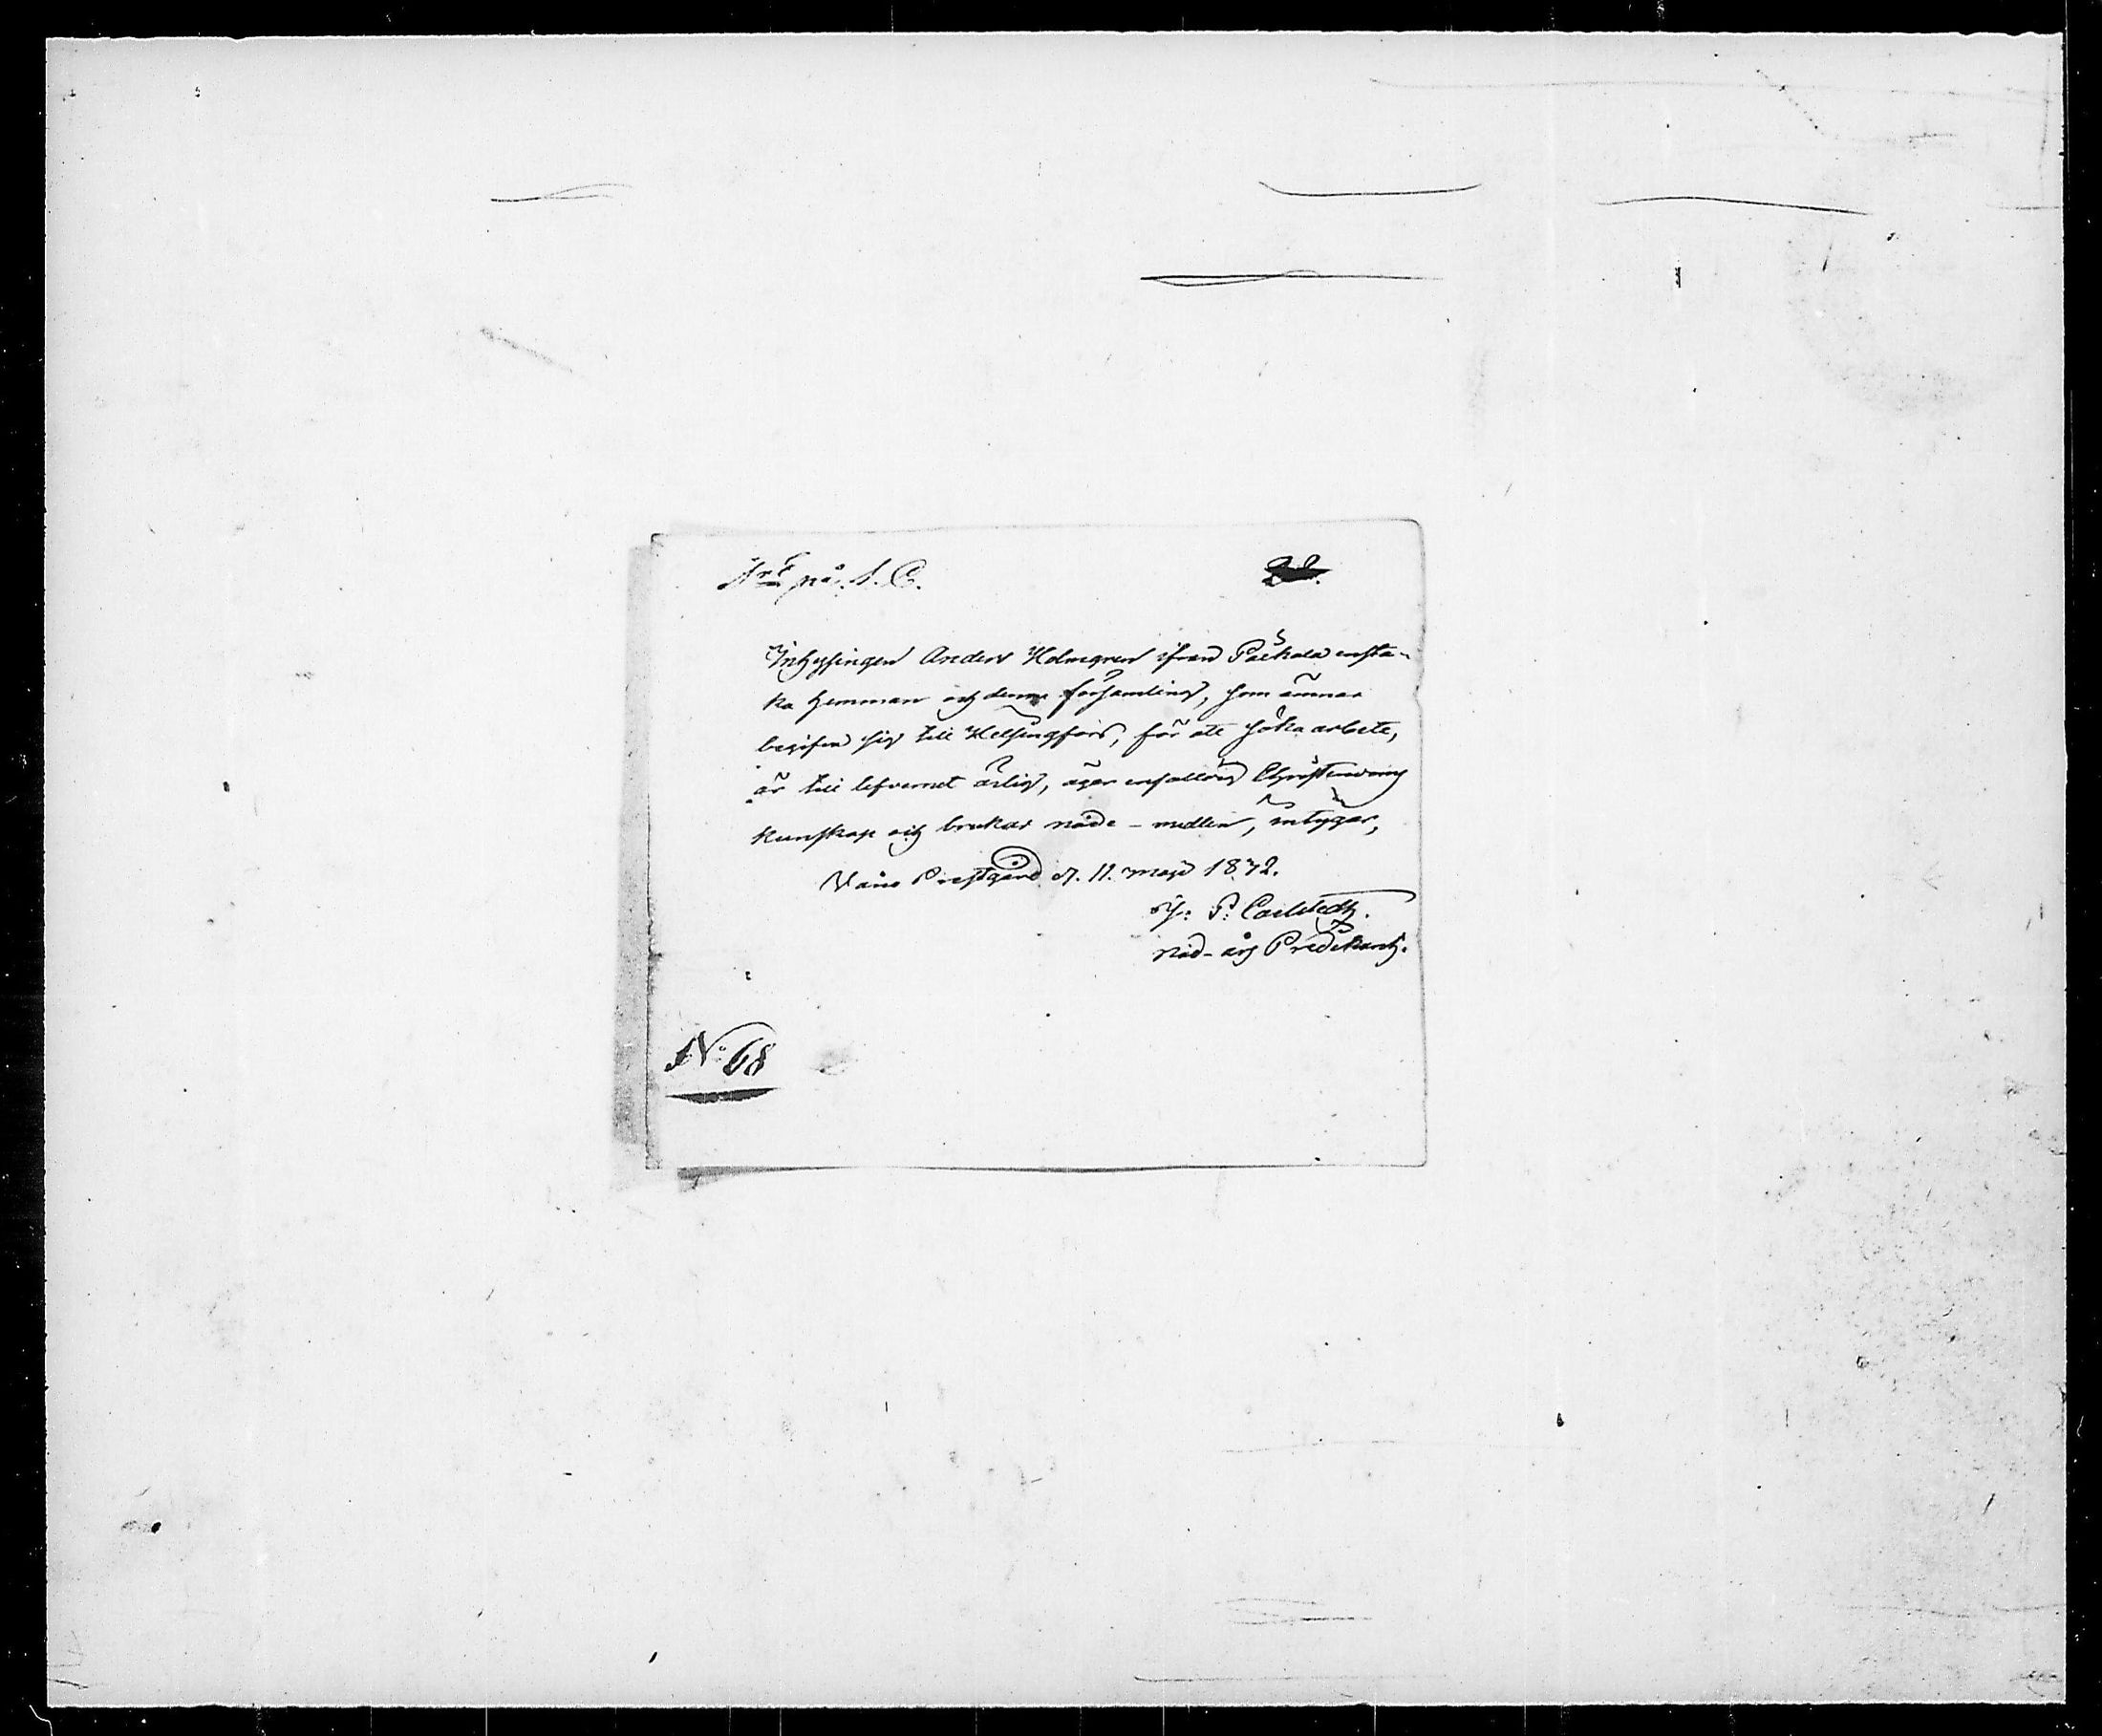 på. S. C.
Inhysingen Anders Holmgren ifrån Paikala ensta-
ka hemman och denna församling, som ämnar
begifva sig till Helsingfors, för att söka arbete,
är till lefvernet ärlig, äger enfalldig Christendoms
kunskap och brukar nåde-medlen, intygar,
Vånå Prestgård d. 11. maji 1832.
P. Carlstedt.
Nåd-års Predikant.
No 68